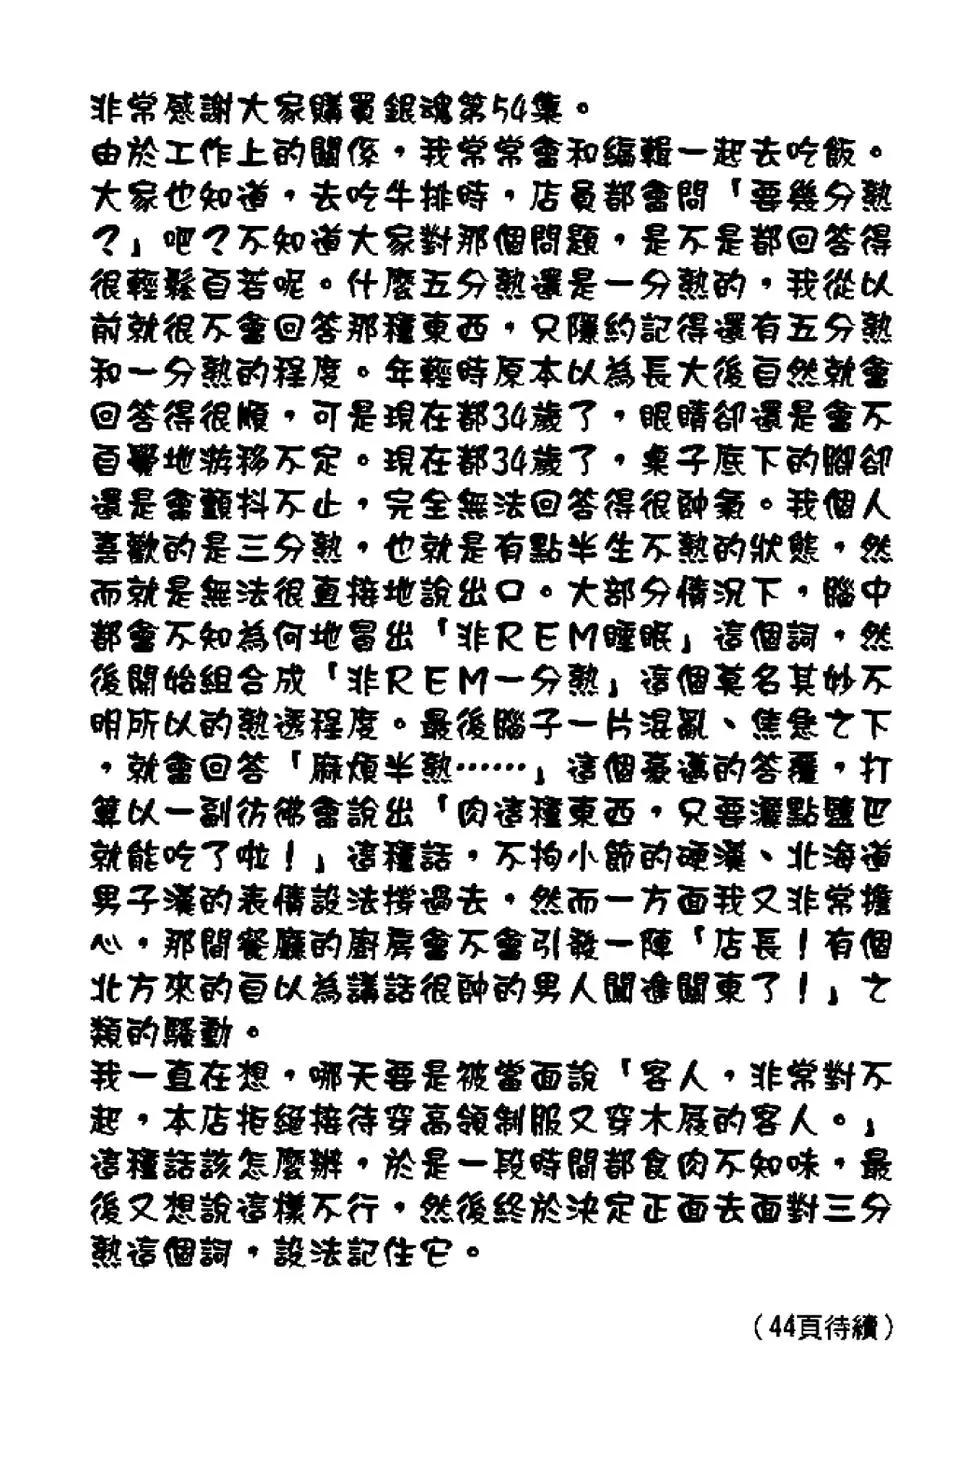 非常感謝大家購買銀魂第54集。
由於工作上的關係，我常常會和編輯一起去吃飯。
大家也知道，去吃牛排時，店員都會問「要幾分熟
？」吧？不知道大家對那個問題，是不是都回答得
很輕鬆自若呢。什麼五分熟還是一分熟的，我從以
前就很不會回答那種東西，只隱約記得還有五分熟
和一分熟的程度。年輕時原本以為長大後自然就會
回答得很順，可是現在都34歲了，眼睛卻還是會不
自覺地游移不定。現在都34歲了，桌子底下的腳卻
還是會顫抖不止，完全無法回答得很帥氣。我個人
喜歡的是三分熟，也就是有點半生不熟的狀態，然
而就是無法很直接地說出口。大部分情況下，腦中
都會不知為何地冒出「非REM睡眠」這個詞，然
後開始組合成「非REM一分熟」這個莫名其妙不
明所以的熟透程度。最後腦子一片混亂、焦急之下
，就會回答「麻煩半熟⋯⋯」這個豪邁的答覆，打
算以一副彷彿會說出「肉這種東西，只要灑點鹽巴
就能吃了啦！」這種話，不拘小節的硬漢、北海道
男子漢的表情設法撐過去，然而一方面我又非常擔
心，那間餐廳的廚房會不會引發一陣「店長！有個
北方來的自以為講話很帥的男人闖進關東了！」之
類的騷動。
我一直在想，哪天要是被當面說「客人，非常對不
起，本店拒絕接待穿高領制服又穿木屐的客人。」
這種話該怎麼辦，於是一段時間都食肉不知味，最
後又想說這樣不行，然後終於決定正面去面對三分
熟這個詞，設法記住它。
（44頁待續）